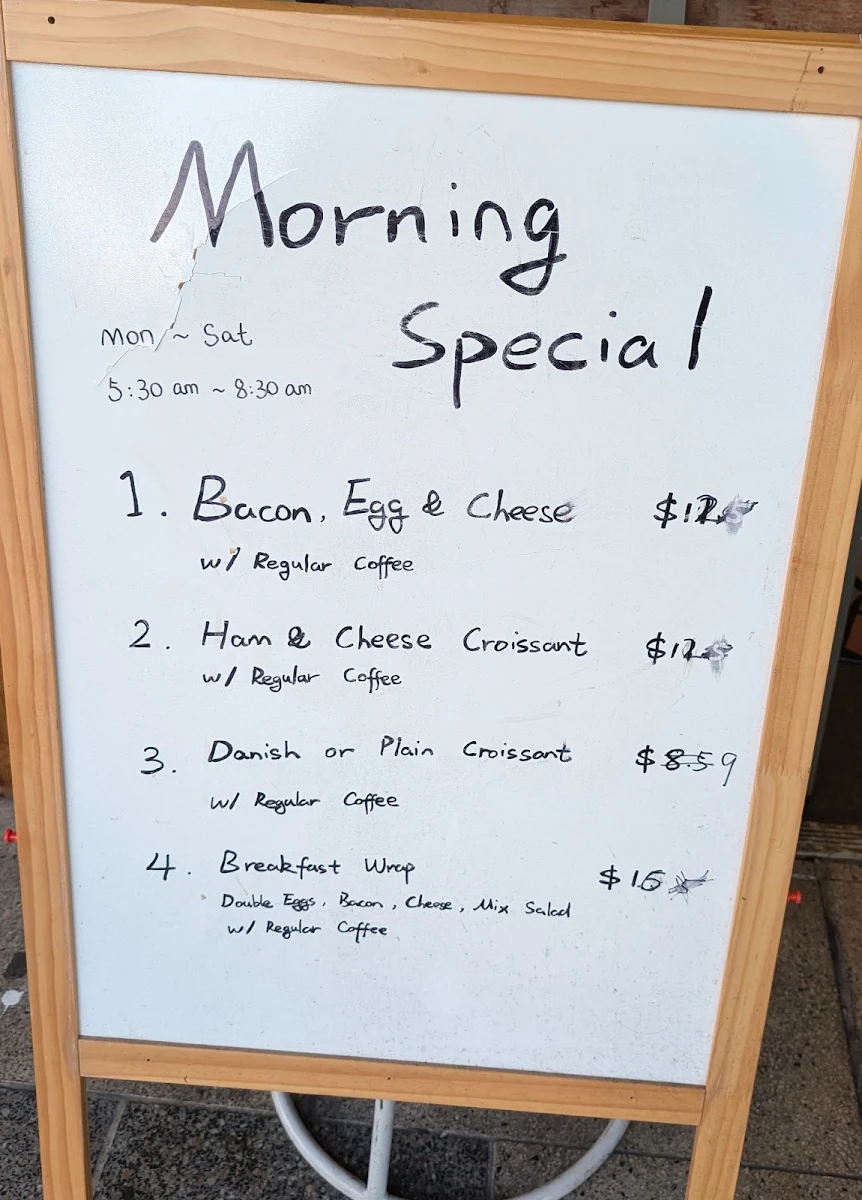 Morning
Special
Mon ~ Sat
5:30 am ~ 8:30 am
1. Bacon, Egg & Cheese $12
w/ Regular Coffee
2. Ham & Cheese Croissant $12
w/ Regular Coffee
3. Danish or Plain Croissant $ 8.5 9
w/ Regular Coffee
4. Breakfast Wrap
Double Eggs, Bacon, Cheese, Mix Salad
w/ Regular Coffee